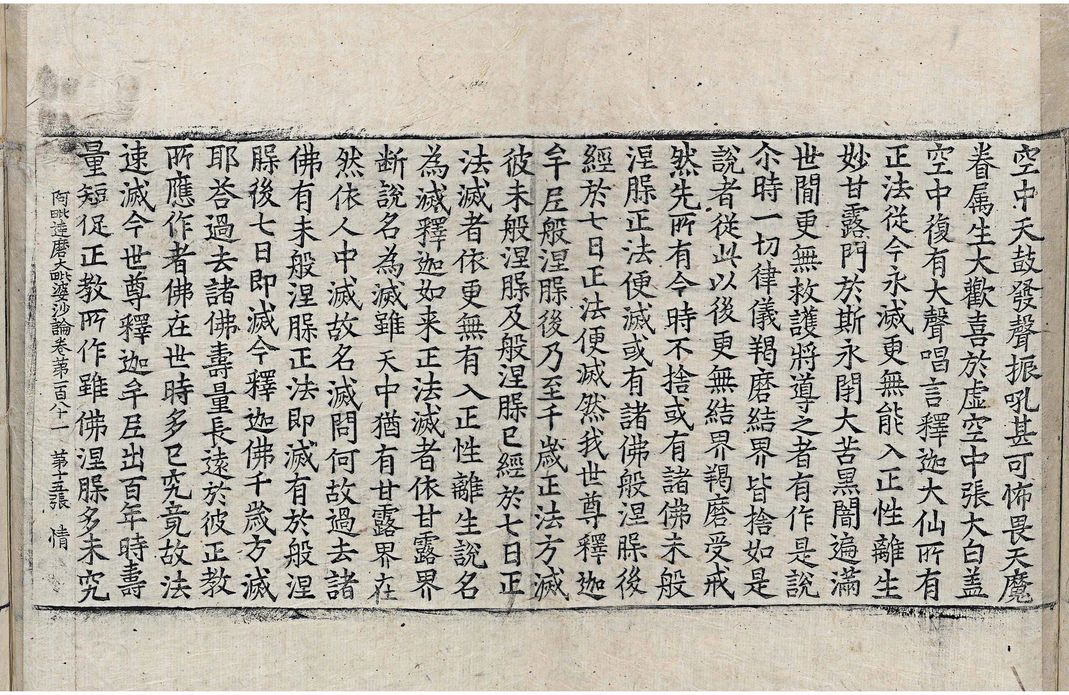 空中天鼓發聲振吼甚可怖畏天魔
眷属生大歡喜於虛空中張大白盖
空中復有大聲唱言釋迦大仙所有
正法從今永滅更無能入正性離生
妙甘露門於斯永閇大苦黑闇遍滿
世閒更無救護將導之者有作是說
尒時一切律儀羯磨結界皆捨如是
說者從此以後更無結界羯磨受戒
然先所有今時不捨或有諸佛未般
涅脲正法便滅或有諸佛般涅脲後
經於七日正法便滅然我世尊釋迦
牟𡰱般涅脲後乃至千歲正法方滅
彼未般涅脲及般涅脲已經於七日正
法滅者依更無有入正性離生說名
為滅釋迦如来正法滅者依甘露界
断說名為滅雖天中猶有甘露界在
然依人中滅故名滅問何故過去諸
佛有未般涅脲正法即滅有於般涅
脲後七日即滅今釋迦佛千歲方滅
耶荅過去諸佛壽量長遠於彼正教
所應作者佛在世時多已究竟故法
速滅今世尊釋迦牟𡰱出百年時壽
量短促正教所作雖佛涅脲多未究
阿毗達磨大毗婆沙論卷第百八十一 第十五張 情